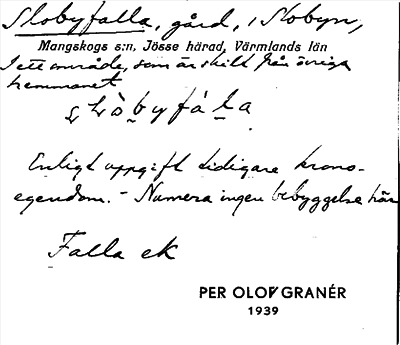 Slobyfalla, gård, i Slobyn,
Mangskogs s:n, Jösse härad, Värmlands län
I ett område, som är skilt från övriga
hemmanet
Enligt uppgift tidigare krono-
egendom. - Numera ingen bebyggelse här
Falla ek
PER OLOF GRANÉR
1939